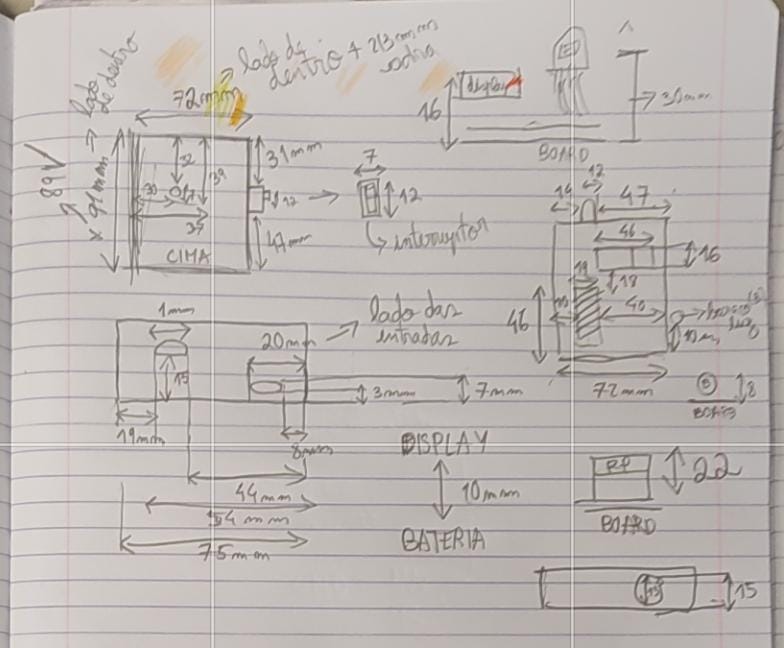 lado de
dentro + 2/3 mm
72mm
lado
de dentro
89
91mm
32
39
30
35
CIMA
31mm
12
47mm
7
12
interruptor
display
16
LED
BOARD
12
14
47
46
16
11
18
46
40
10mm
72mm
8
1mm
15
19mm
20mm
lado das
entradas
3mm
7mm
8mm
44mm
54mm
75mm
DISPLAY
10mm
BATERIA
22
BOARD
15